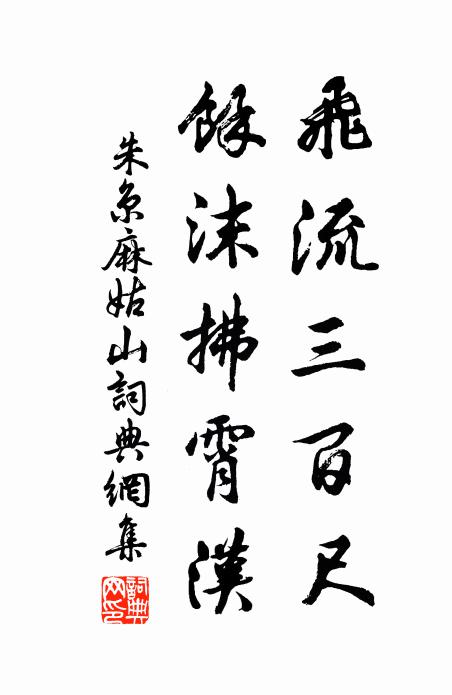 飛流三百尺
餘沫拂霄漢
朱京麻姑山詞典網集
詞典網印